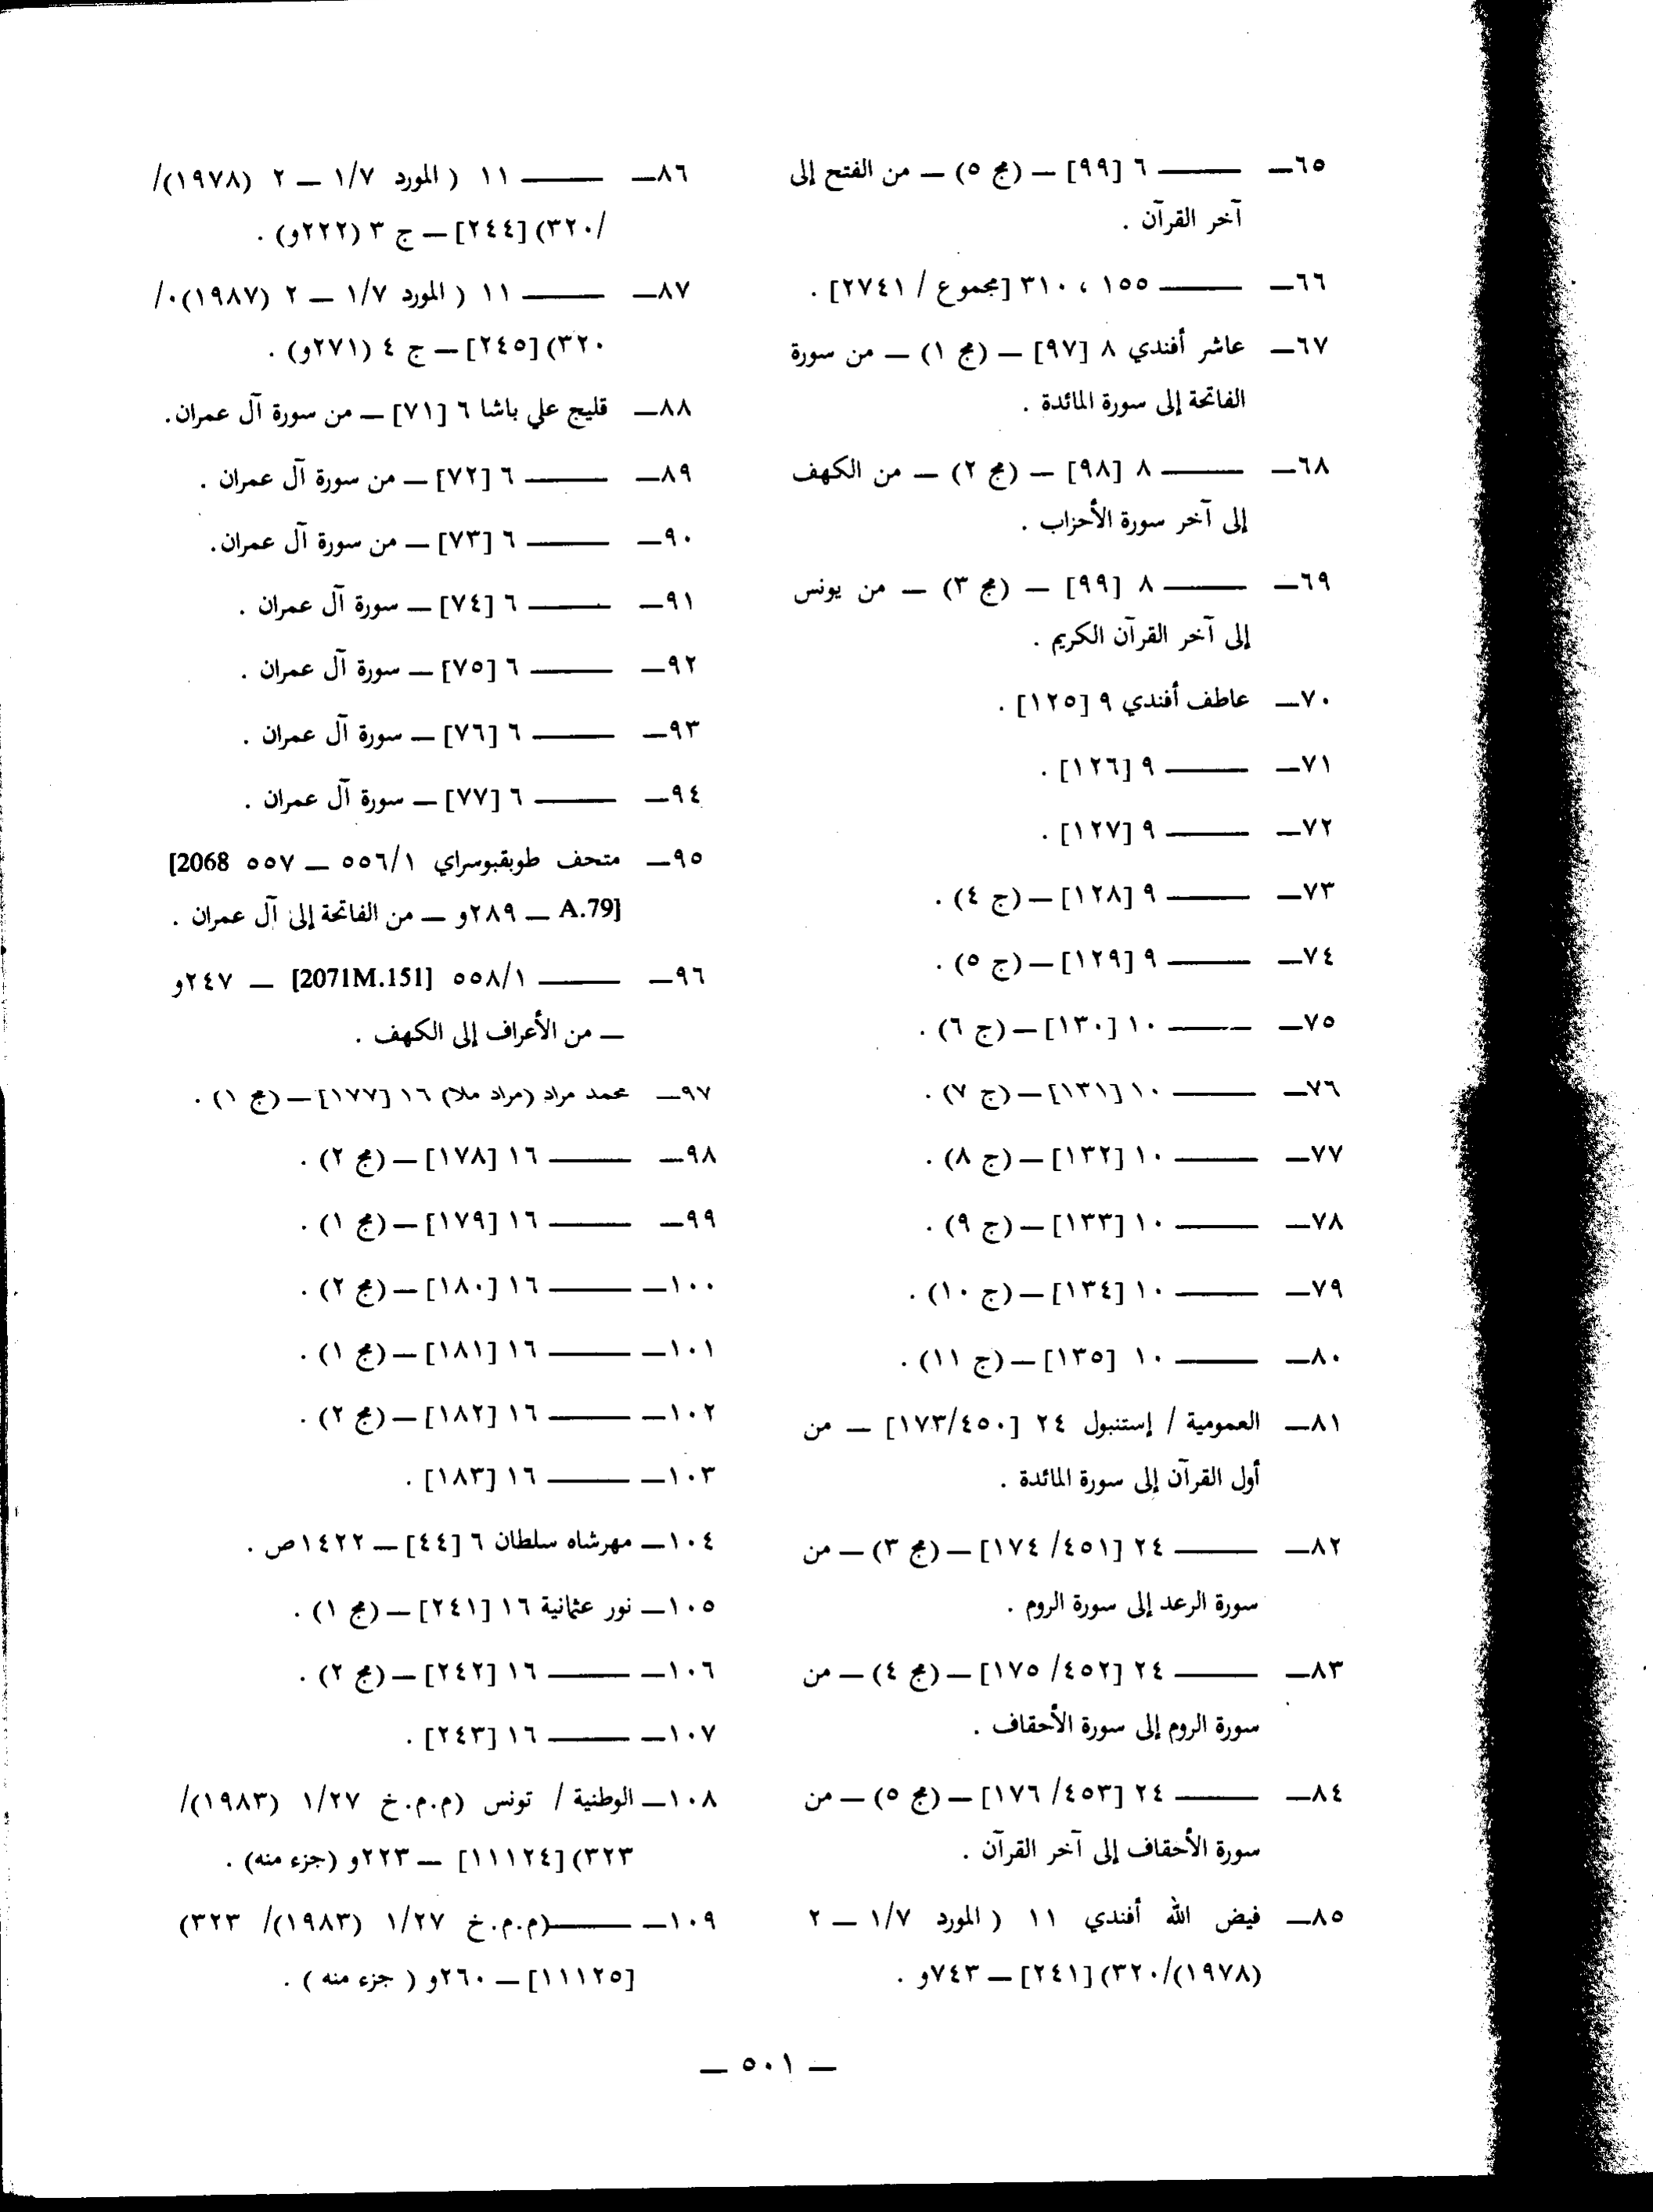 ٦٥ــ ــــــ ٦ [٩٩] ــ (مج ٥) ــ من الفتح إلى
آخر القرآن .
٦٦ــ ــــــ ١٥٥ ، ٣١٠ [مجموع / ٢٧٤١] .
٦٧ــ عاشر أفندي ٨ [٩٧] ــ (مج ١) ــ من سورة
الفاتحة إلى سورة المائدة .
٦٨ــ ــــــ ٨ [٩٨] ــ (مج ٢) ــ من الكهف
إلى آخر سورة الأحزاب .
٦٩ــ ــــــ ٨ [٩٩] ــ (مج ٣) ــ من يونس
إلى آخر القرآن الكريم .
٧٠ــ عاطف أفندي ٩ [١٢٥] .
٧١ــ ــــــ ٩ [١٢٦] .
٧٢ــ ــــــ ٩ [١٢٧] .
٧٣ــ ــــــ ٩ [١٢٨] ــ (ج ٤) .
٧٤ــ ــــــ ٩ [١٢٩] ــ (ج ٥) .
٧٥ــ ــــــ ١٠ [١٣٠] ــ (ج ٦) .
٧٦ــ ــــــ ١٠ [١٣١] ــ (ج ٧) .
٧٧ــ ــــــ ١٠ [١٣٢] ــ (ج ٨) .
٧٨ــ ــــــ ١٠ [١٣٣] ــ (ج ٩) .
٧٩ــ ــــــ ١٠ [١٣٤] ــ (ج ١٠) .
٨٠ــ ــــــ ١٠ [١٣٥] ــ (ج ١١) .
٨١ــ العمومية / إستنبول ٢٤ [١٧٣/٤٥٠] ــ من
أول القرآن إلى سورة المائدة .
٨٢ــ ــــــ ٢٤ [٤٥١/ ١٧٤] ــ (مج ٣) ــ من
سورة الرعد إلى سورة الروم .
٨٣ــ ــــــ ٢٤ [٤٥٢/ ١٧٥] ــ (مج ٤) ــ من
سورة الروم إلى سورة الأحقاف .
٨٤ــ ــــــ ٢٤ [٤٥٣/ ١٧٦] ــ (مج ٥) ــ من
سورة الأحقاف إلى آخر القرآن .
٨٥ــ فيض الله أفندي ١١ ( المورد ١/٧ ــ ٢
(١٩٧٨)/٣٢٠) [٢٤١] ــ ٧٤٣و .
٨٦ــ ــــــ ١١ ( المورد ١/٧ ــ ٢ (١٩٧٨)/
/٣٢٠) [٢٤٤] ــ ج ٣ (٢٢٢و) .
٨٧ــ ــــــ ١١ ( المورد ١/٧ ــ ٢ (١٩٨٧)٠/
٣٢٠) [٢٤٥] ــ ج ٤ (٢٧١و) .
٨٨ــ قليج علي باشا ٦ [٧١] ــ من سورة آل عمران.
٨٩ــ ــــــ ٦ [٧٢] ــ من سورة آل عمران .
٩٠ــ ــــــ ٦ [٧٣] ــ من سورة آل عمران.
٩١ــ ــــــ ٦ [٧٤] ــ سورة آل عمران .
٩٢ــ ــــــ ٦ [٧٥] ــ سورة آل عمران .
٩٣ــ ــــــ ٦ [٧٦] ــ سورة آل عمران .
٩٤ــ ــــــ ٦ [٧٧] ــ سورة آل عمران .
٩٥ــ متحف طوبقبوسراي ٥٥٦/١ ــ ٥٥٧ [2068
A.79] ــ ٢٨٩و ــ من الفاتحة إلى آل عمران .
٩٦ــ ــــــ ٥٥٨/١ [2071M.151] ــ ٢٤٧و
ــ من الأعراف إلى الكهف .
٩٧ــ محمد مراد (مراد ملا) ١٦ [١٧٧] ــ (مج ١) .
٩٨ــ ــــــ ١٦ [١٧٨] ــ (مج ٢) .
٩٩ــ ــــــ ١٦ [١٧٩] ــ (مج ١) .
١٠٠ــ ــــــ ١٦ [١٨٠] ــ (مج ٢) .
١٠١ــ ــــــ ١٦ [١٨١] ــ (مج ١) .
١٠٢ــ ــــــ ١٦ [١٨٢] ــ (مج ٢) .
١٠٣ــ ــــــ ١٦ [١٨٣] .
١٠٤ــ مهرشاه سلطان ٦ [٤٤] ــ ١٤٢٢ص .
١٠٥ــ نور عثمانية ١٦ [٢٤١] ــ (مج ١) .
١٠٦ــ ــــــ ١٦ [٢٤٢] ــ (مج ٢) .
١٠٧ــ ــــــ ١٦ [٢٤٣] .
١٠٨ــ الوطنية / تونس (م.م.خ ١/٢٧ (١٩٨٣)/
٣٢٣) [١١١٢٤] ــ ٢٢٣و (جزء منه) .
١٠٩ــ ــــــ(م.م.خ ١/٢٧ (١٩٨٣)/ ٣٢٣)
[١١١٢٥] ــ ٢٦٠و ( جزء منه ) .
ــ ٥٠١ ــ